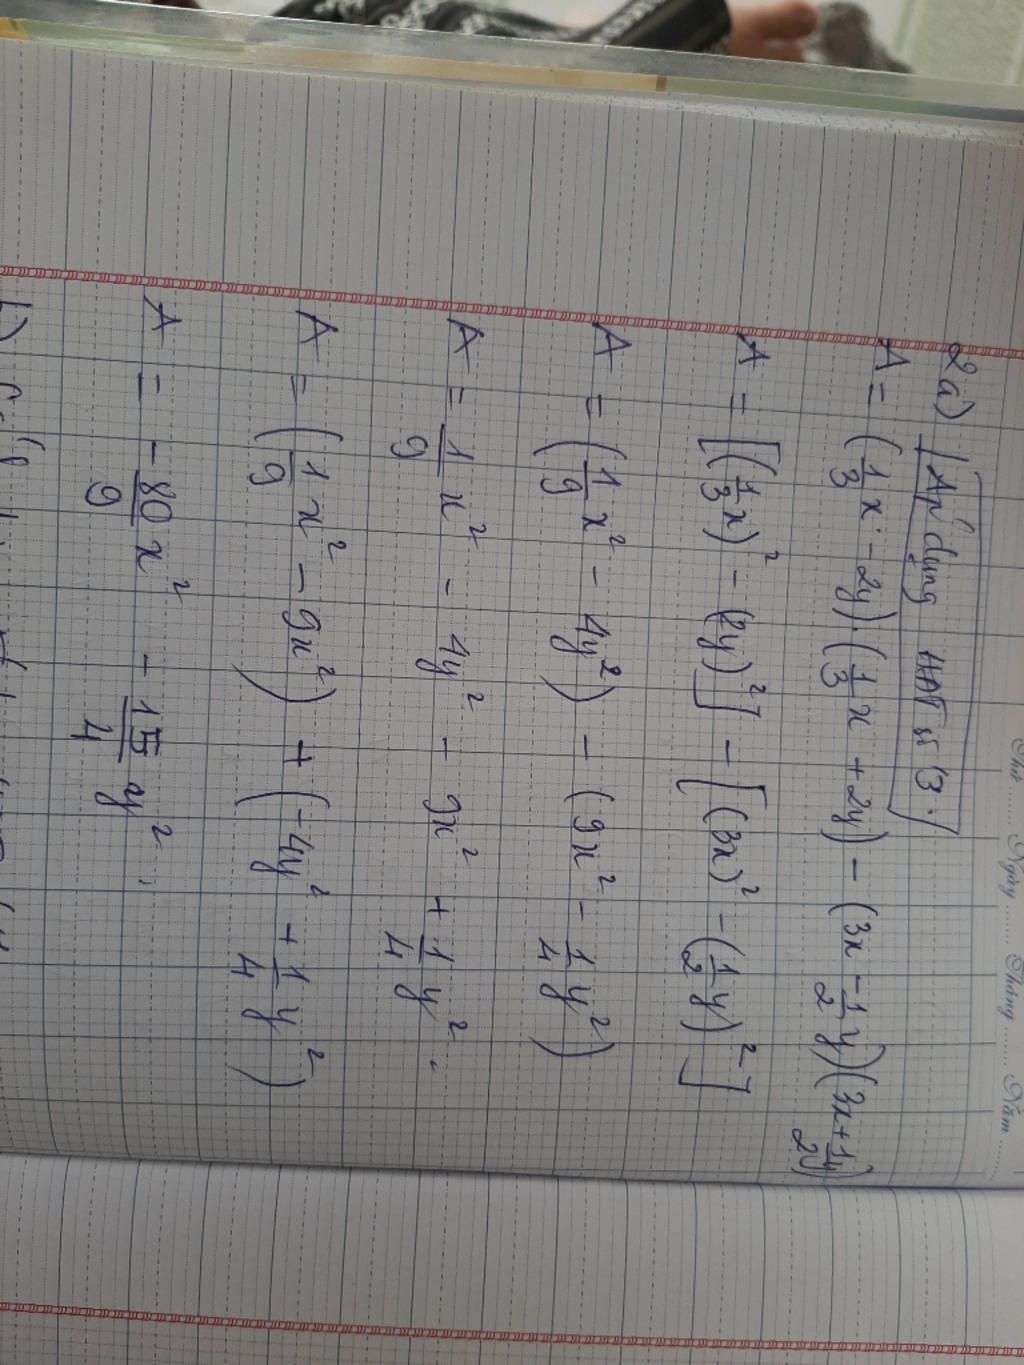 Thứ ........ Ngày ........ Tháng ........ Năm ........
2a) Áp dụng HĐT số 3.
A = (1/3 x - 2y).(1/3 x + 2y) - (3x - 1/2 y)(3x + 1/2 y)
A = [(1/3 x)² - (2y)²] - [(3x)² - (1/2 y)²]
A = (1/9 x² - 4y²) - (9x² - 1/4 y²)
A = 1/9 x² - 4y² - 9x² + 1/4 y².
A = (1/9 x² - 9x²) + (-4y² + 1/4 y²)
A = -80/9 x² - 15/4 y².
b)